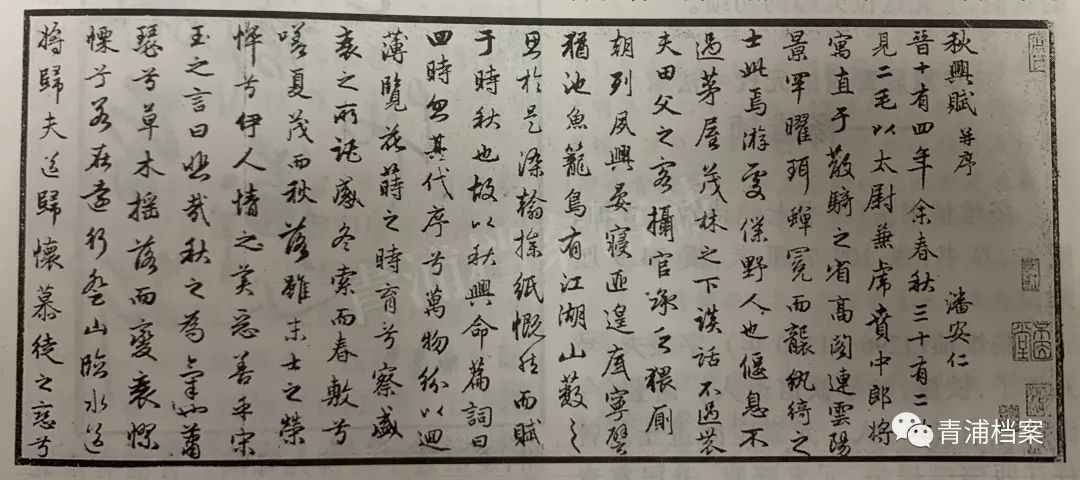 秋興賦 并序 潘安仁
晉十有四年余春秋三十有二
見二毛以太尉兼虎賁中郎將
寓直于散騎之省高閣連雲陽
景罕曜珥蟬冕而襲紈綺之
士此焉游處僕野人也偃息不
過茅屋茂林之下談話不過農
夫田父之客攝官承乏猥厠
朝列夙興晏寢匪遑底寧譬
猶池魚籠鳥有江湖山藪之
思於是染翰操紙慨然而賦
于時秋也故以秋興命篇詞曰
四時忽其代序兮萬物紛以迴
薄覽花蒔之時育兮察盛
衰之所託感冬索而春敷兮
嗟夏茂而秋落雖末士之榮
悴兮伊人情之美惡善乎宋
玉之言曰悲哉秋之為氣也蕭
瑟兮草木搖落而變衰憭
慄兮若在遠行登山臨水送
將歸夫送歸懷慕徒之戀兮
青浦档案